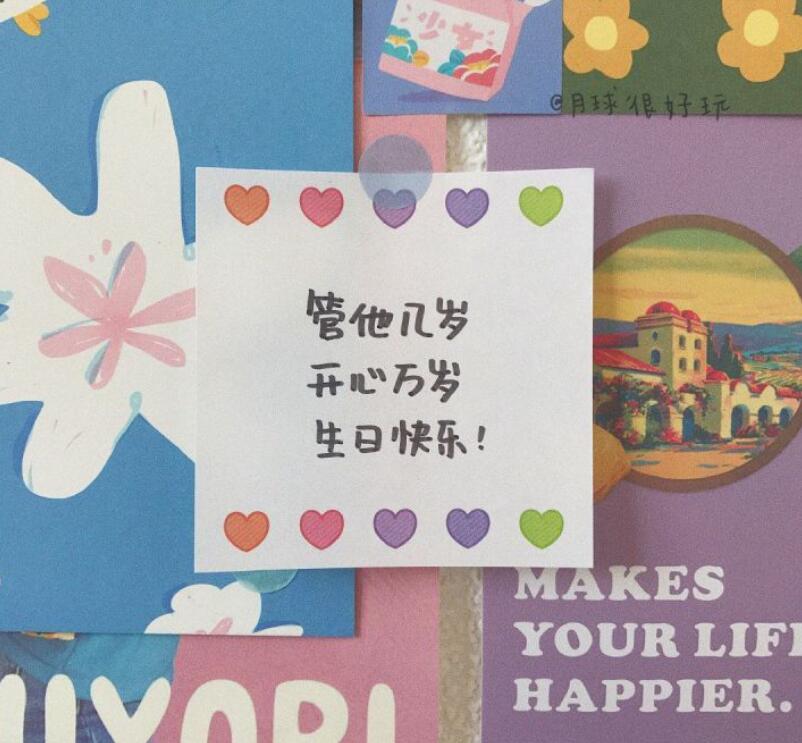 少女
@月球很好玩
管他几岁
开心万岁
生日快乐！
MAKES
YOUR LIF
HAPPIER.